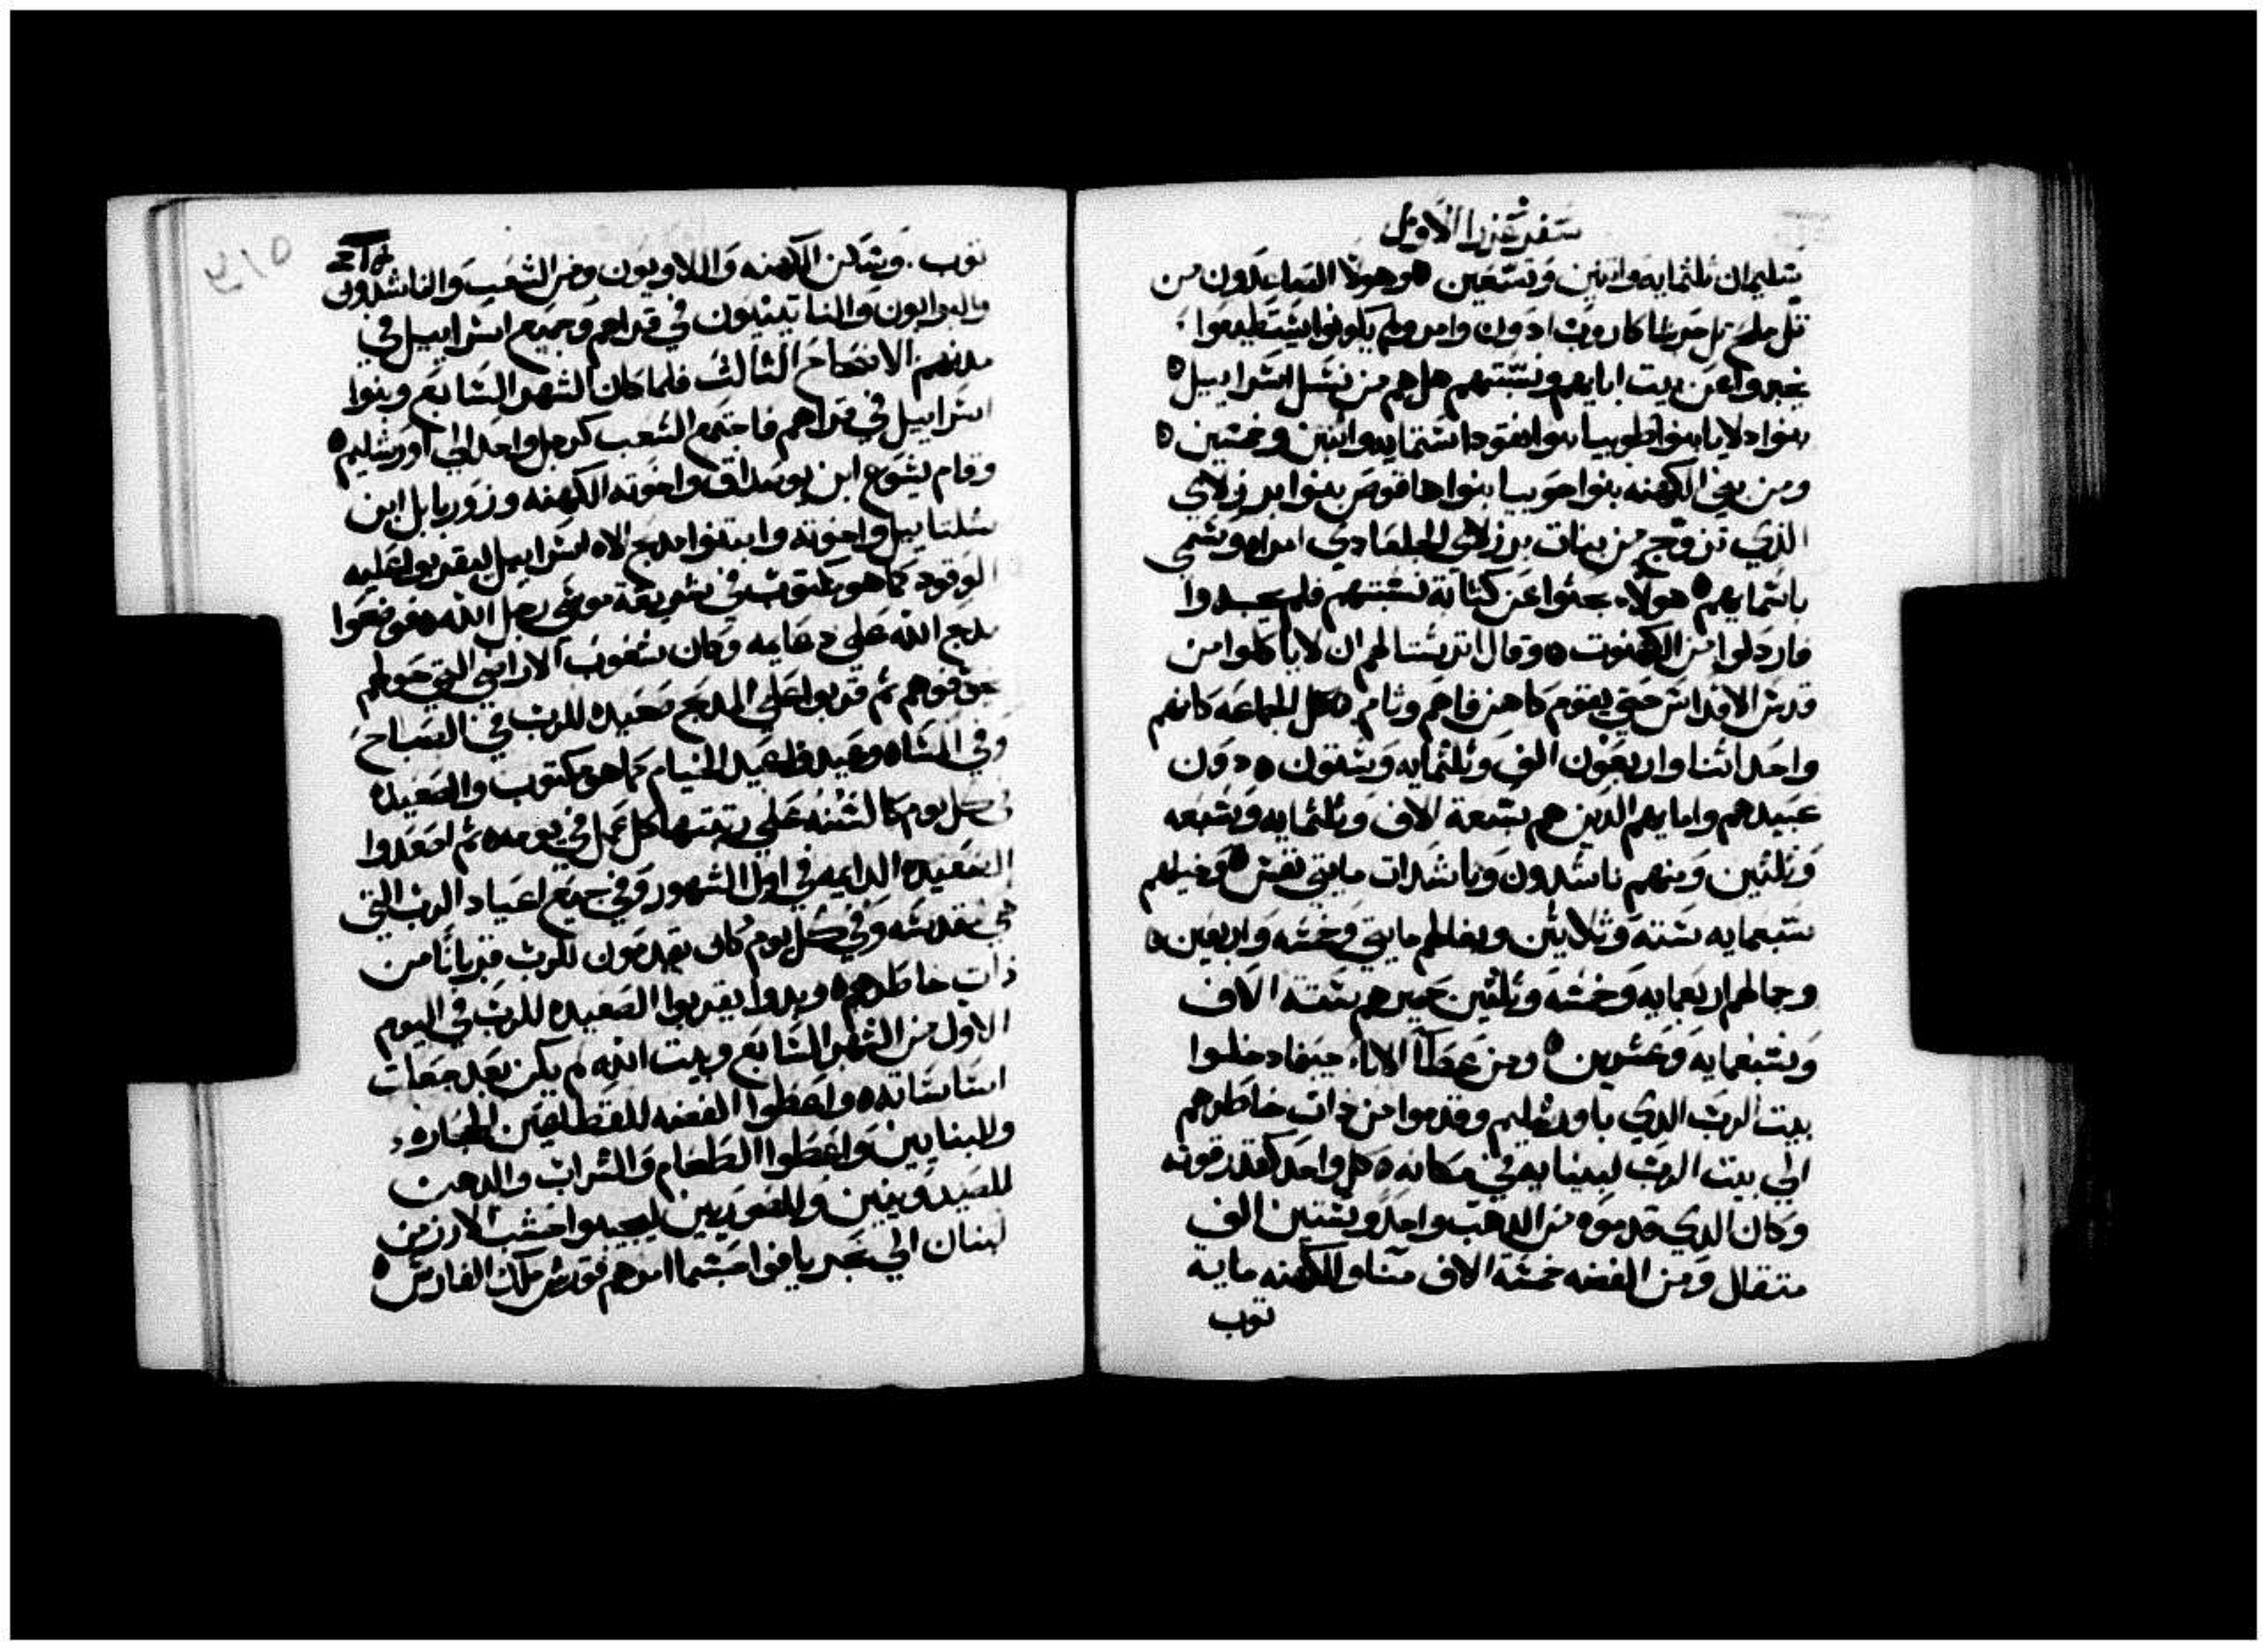 سفر عزرا الاول
سليمان ثلثمايه واثنين وتسعين ٥ وهولا الصاعدون من
تل ملح تل حرسا كاروب ادون وامر ولم يكونوا يستطيعوا
يخبروا عن بيت ابايهم ونسبتهم هل هم من نسل اسراييل ٥
بنوا دلايا بنوا طوبيا بنوا نقودا ستمايه واثنين وخمسين ٥
ومن بني الكهنه بنوا حوبيا بنوا هاقوص بنوا برزلاي
الذي تزوج من بنات برزلاي الجلعادي امراه وسمي
باسمايهم ٥ هولاء بحثوا عن كتابة نسبتهم فلم يجدوا
فاردلوا من الكهنوت ٥ وقال اترستا لهم ان لا ياكلوا من
قدس الاقداس حتي يقوم كاهن فاهم وتام ٥ كل الجماعه كانهم
واحد اثنا واربعون الف وثلثمايه وستون ٥ دون
عبيدهم وامايهم الدين هم سبعة الاف وثلثمايه وسبعه
وثلثين ومنهم ناشدون وناشدات مايتي نفس ٥ وخيلهم
سبعمايه سته وثلاثين وبغالهم مايتي وخمسه واربعين ٥
وجمالهم اربعمايه وخمسه وثلثين حميرهم ستة الاف
وسبعمايه وعشرين ٥ ومن عطا الاباء حينما دخلوا
بيت الرب الدي باورشليم وقدموا من ذات خاطرهم
الي بيت الرب ليبنا به في مكانه ٥ كل واحد كقدر قوته
وكان الدي قدموه من الدهب واحد وستين الف
متقال ومن الفضه خمسة الاف منا وللكهنه مايه
توب
توب. وسكن الكهنه واللاويون ومن الشعب والناشدون
والبوابون والناتينيون في قراهم وجميع اسراييل في
مدنهم الاصحاح الثالث فلما كان الشهر السابع وبنوا
اسراييل في قراهم فاجتمع الشعب كرجل واحد الي اورشليم ٥
وقام يشوع ابن يوصداق واخوته الكهنه وزوربابل ابن
شلتاييل واخوته وابتنوا مدبح الاه اسراييل ليقربوا عليه
الوقود كما هو مكتوب في شريعة موسي رجل الله ٥ فوضعوا
مدبح الله علي دعايمه وكان شعوب الاراضي التي حولهم
يخوفوهم ثم قربوا علي المدبح صعيده للرب في الصباح
وفي المساه وعيدوا عيد الخيام كما هو مكتوب والصعيده
في كل يوم كالسنه علي رتبتها كل عمل في يومه ٥ ثم اصعدوا
الصعيده الدايمه في اول الشهور وفي جميع اعياد الرب التي
هي مقدسه وفي كل يوم كان يقدمون للرب قربانا من
ذات خاطرهم ٥ وبدوا يقربوا الصعيده للرب في اليوم
الاول من الشهر السابع وبيت الله لم يكن بعد جعلت
اساساته ٥ واعطوا الفضه للقطاعين الحجاره
وللبنايين واعطوا الطعام والشراب والدهن
للصيدونيين وللصوريين ليجيبوا خشب الارز من
لبنان الي بحر يافوا حسبما امرهم قورش ملك الفارس ٥